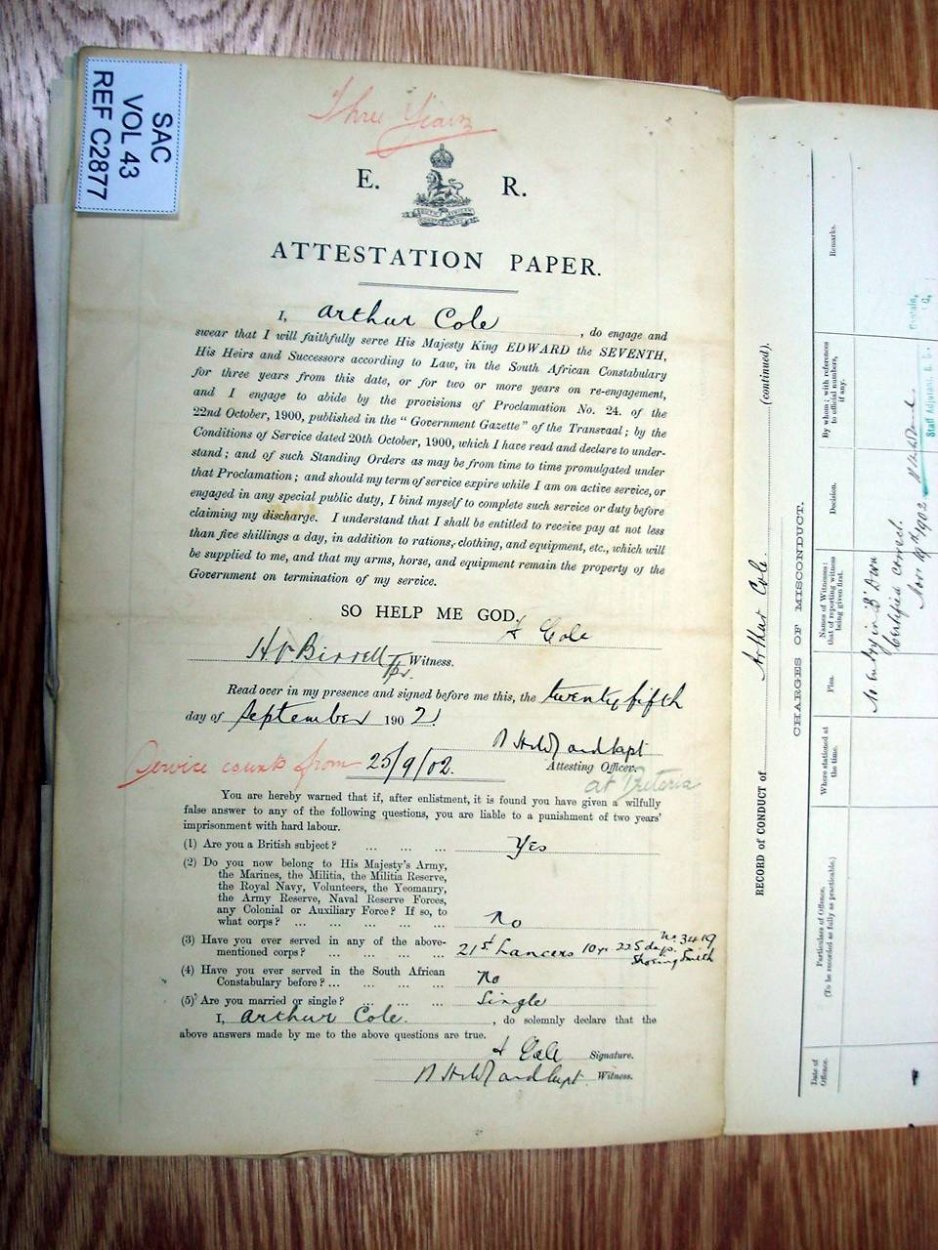 SAC
VOL 43
REF C2877
Three Years
E. R.
SOUTH AFRICAN
CONSTABULARY
ATTESTATION PAPER.
I, Arthur Cole, do engage and
swear that I will faithfully serve His Majesty King EDWARD the SEVENTH,
His Heirs and Successors according to Law, in the South African Constabulary
for three years from this date, or for two or more years on re-engagement,
and I engage to abide by the provisions of Proclamation No. 24. of the
22nd October, 1900, published in the "Government Gazette" of the Transvaal; by the
Conditions of Service dated 20th October, 1900, which I have read and declare to under-
stand; and of such Standing Orders as may be from time to time promulgated under
that Proclamation; and should my term of service expire while I am on active service, or
engaged in any special public duty, I bind myself to complete such service or duty before
claiming my discharge. I understand that I shall be entitled to receive pay at not less
than five shillings a day, in addition to rations, clothing, and equipment, etc., which will
be supplied to me, and that my arms, horse, and equipment remain the property of the
Government on termination of my service.
SO HELP ME GOD.
A Cole
H. V. Birrell Tpr. Witness.
Read over in my presence and signed before me this, the twenty fifth
day of September 1902
Capt
Attesting Officer.
Service counts from 25/9/02.
at Pretoria
You are hereby warned that if, after enlistment, it is found you have given a wilfully
false answer to any of the following questions, you are liable to a punishment of two years'
imprisonment with hard labour.
(1) Are you a British subject? ... ... ... Yes
(2) Do you now belong to His Majesty's Army,
the Marines, the Militia, the Militia Reserve,
the Royal Navy, Volunteers, the Yeomanry,
the Army Reserve, Naval Reserve Forces,
any Colonial or Auxiliary Force? If so, to
what corps? ... ... ... ... ... No
(3) Have you ever served in any of the above-
mentioned corps? ... ... ... ... 21st Lancers 10 yr 225 days. No. 3419
Shoeing Smith
(4) Have you ever served in the South African
Constabulary before? ... ... ... ... No
(5) Are you married or single? ... ... ... Single
I, Arthur Cole., do solemnly declare that the
above answers made by me to the above questions are true.
A Cole Signature.
Capt Witness.
RECORD of CONDUCT of Arthur Cole. (continued).
CHARGES OF MISCONDUCT.
Date of
Offence.
Particulars of Offence.
(To be recorded as fully as practicable.)
Where stationed at
the time.
Plea.
Names of Witnesses;
that of reporting witness
being given first.
Decision.
By whom; with reference
to official numbers,
if any.
Remarks.
No entry in 'B' Divn
Certified correct.
Nov 19th 1902
Captain,
Staff Adjutant,